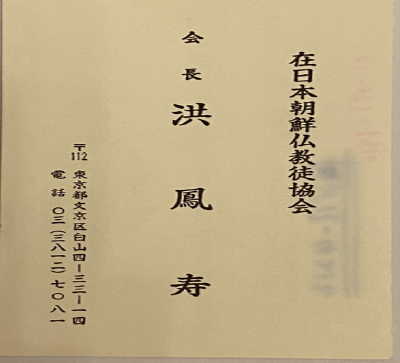 在日本朝鮮仏教徒協会
会長
洪鳳寿
〒112 東京都文京区白山四ー三三ー一四
電話 〇三(三八一二)七〇八一